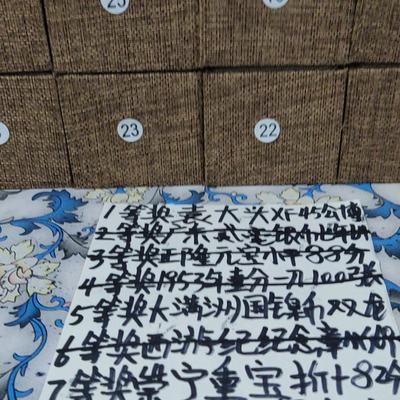 23
22
1等奖袁大头XF45公博
2等奖广东
3等奖正隆元宝小平88分
4等奖1953年壹分一刀100张
5等奖大满洲国镍币双龙
6等奖西沙 纪念章
7等奖崇宁重宝折十82分